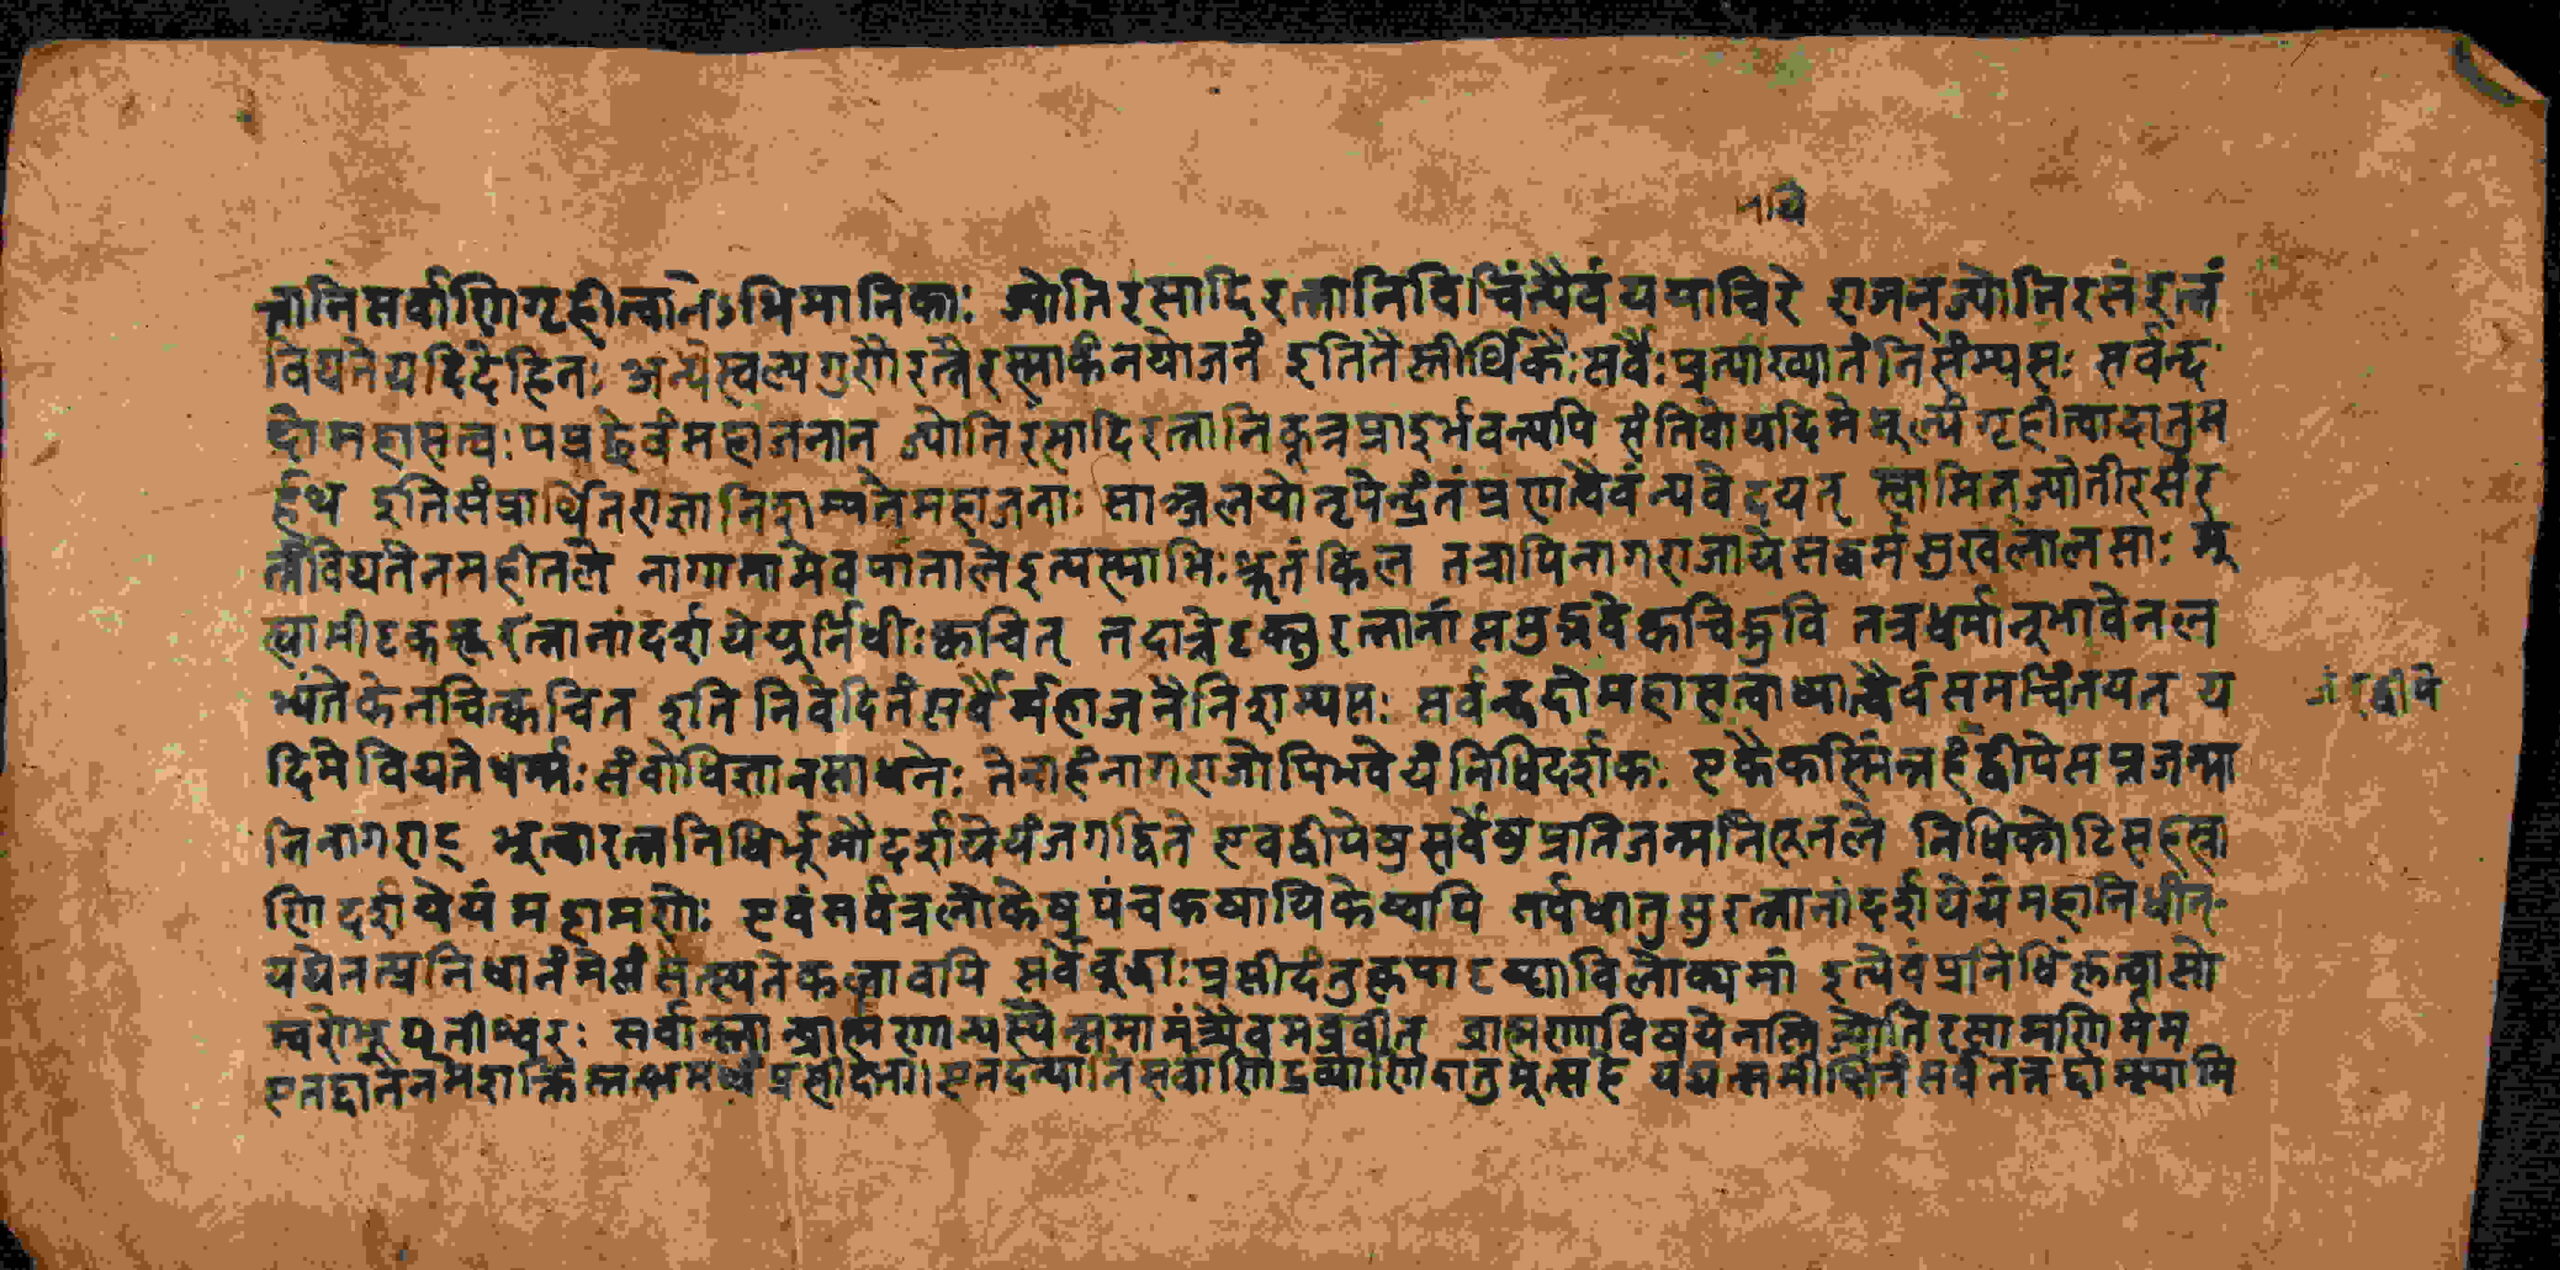 मयि
त्नानि सर्वाणि गृहीत्वा तेऽभिमानिकाः ज्योतिरसादि रत्नानि विचिंत्यैवं ययाचिरे राजन् ज्योतिरसं रत्नं
विद्यते यदि देहि नः अन्यैः स्वल्पगुणै रत्नैरस्माकं न योजनं इति तै स्तीर्थिकैः सर्वैः प्रत्याख्यातं निसंम्य सः सर्वन्द
दो महासत्वः पप्रछैवं महाजनान् ज्योतिरसादि रत्नानि कुत्र प्रादुर्भवन्त्यपि संति वो यदि मे मूल्यं गृहीत्वा दातुम
र्हथ इति संप्रार्थित राज्ञा निशम्य ते महाजनाः साञ्जलयो नृपेन्द्रं तं प्रणत्यैवं न्यवेदयत् स्वामिन् ज्योतीरसं र
त्नं विद्यते न महीतले नागानामेव पाताले इत्यस्माभिः श्रूतं किल तत्रापि नागराजा ये सद्धर्मसुखलालसाः भू
त्वामीदृक्सु रत्नानां दर्शयेयुर्निधीः क्वचित् तदात्रेदृक्सु रत्नानां समुद्भवे क्वचिद्भुवि तत्र धर्मानुभावेन ल
भ्यंते केनचित्क्वचित् इति निवेदितं सर्वैर्महाजनै निशम्य सः सर्वन्ददो महासत्वो ध्यात्वैवं समचिंतयत् य
जंवूद्वीपे
दि मे विद्यते धर्म्मः संवोधिज्ञानसाधने तेनाहं नागराजोपि भवेयं निधिदर्शकः एकैकस्मिंन्नहं द्वीपे सप्तजन्मा
नि नागराट् भूत्वा रत्ननिधिर्भूमौ दर्शयेयं जगद्धिते एव द्वीपेषु सर्वेषु प्रतिजन्मनि भूतले निधिकोटिसहस्रा
णि दर्शयेयं महामणेः एवं सर्वत्र लोकेषु पंचकषायिकेष्वपि सर्वधातुसुरत्नानां दर्शयेयं महानिधीन्
यद्येतत्प्रनिधानं मे संसेत्स्यते कलावपि सर्वे वुद्धाः प्रसीदंतु कृपादृष्ट्या विलोक्य मां इत्येवं प्रनिधिं कृत्वा सो
स्वरोभूपतीश्वरः सर्वान्स्तान् ब्राह्मणान्पश्यैन् समामंत्र्यैवमव्रवीत् ब्राह्मणा विषये नास्ति ज्योतिरसा मणि र्मम
एतद्दाने न मे शक्तिस्तत्क्षमध्वं प्रसीदत। एतदन्यानि सर्वाणि द्रव्याणि दातुमूत्सहे यद्यत्समीक्षितं सर्वं तत्तद्दास्यामि